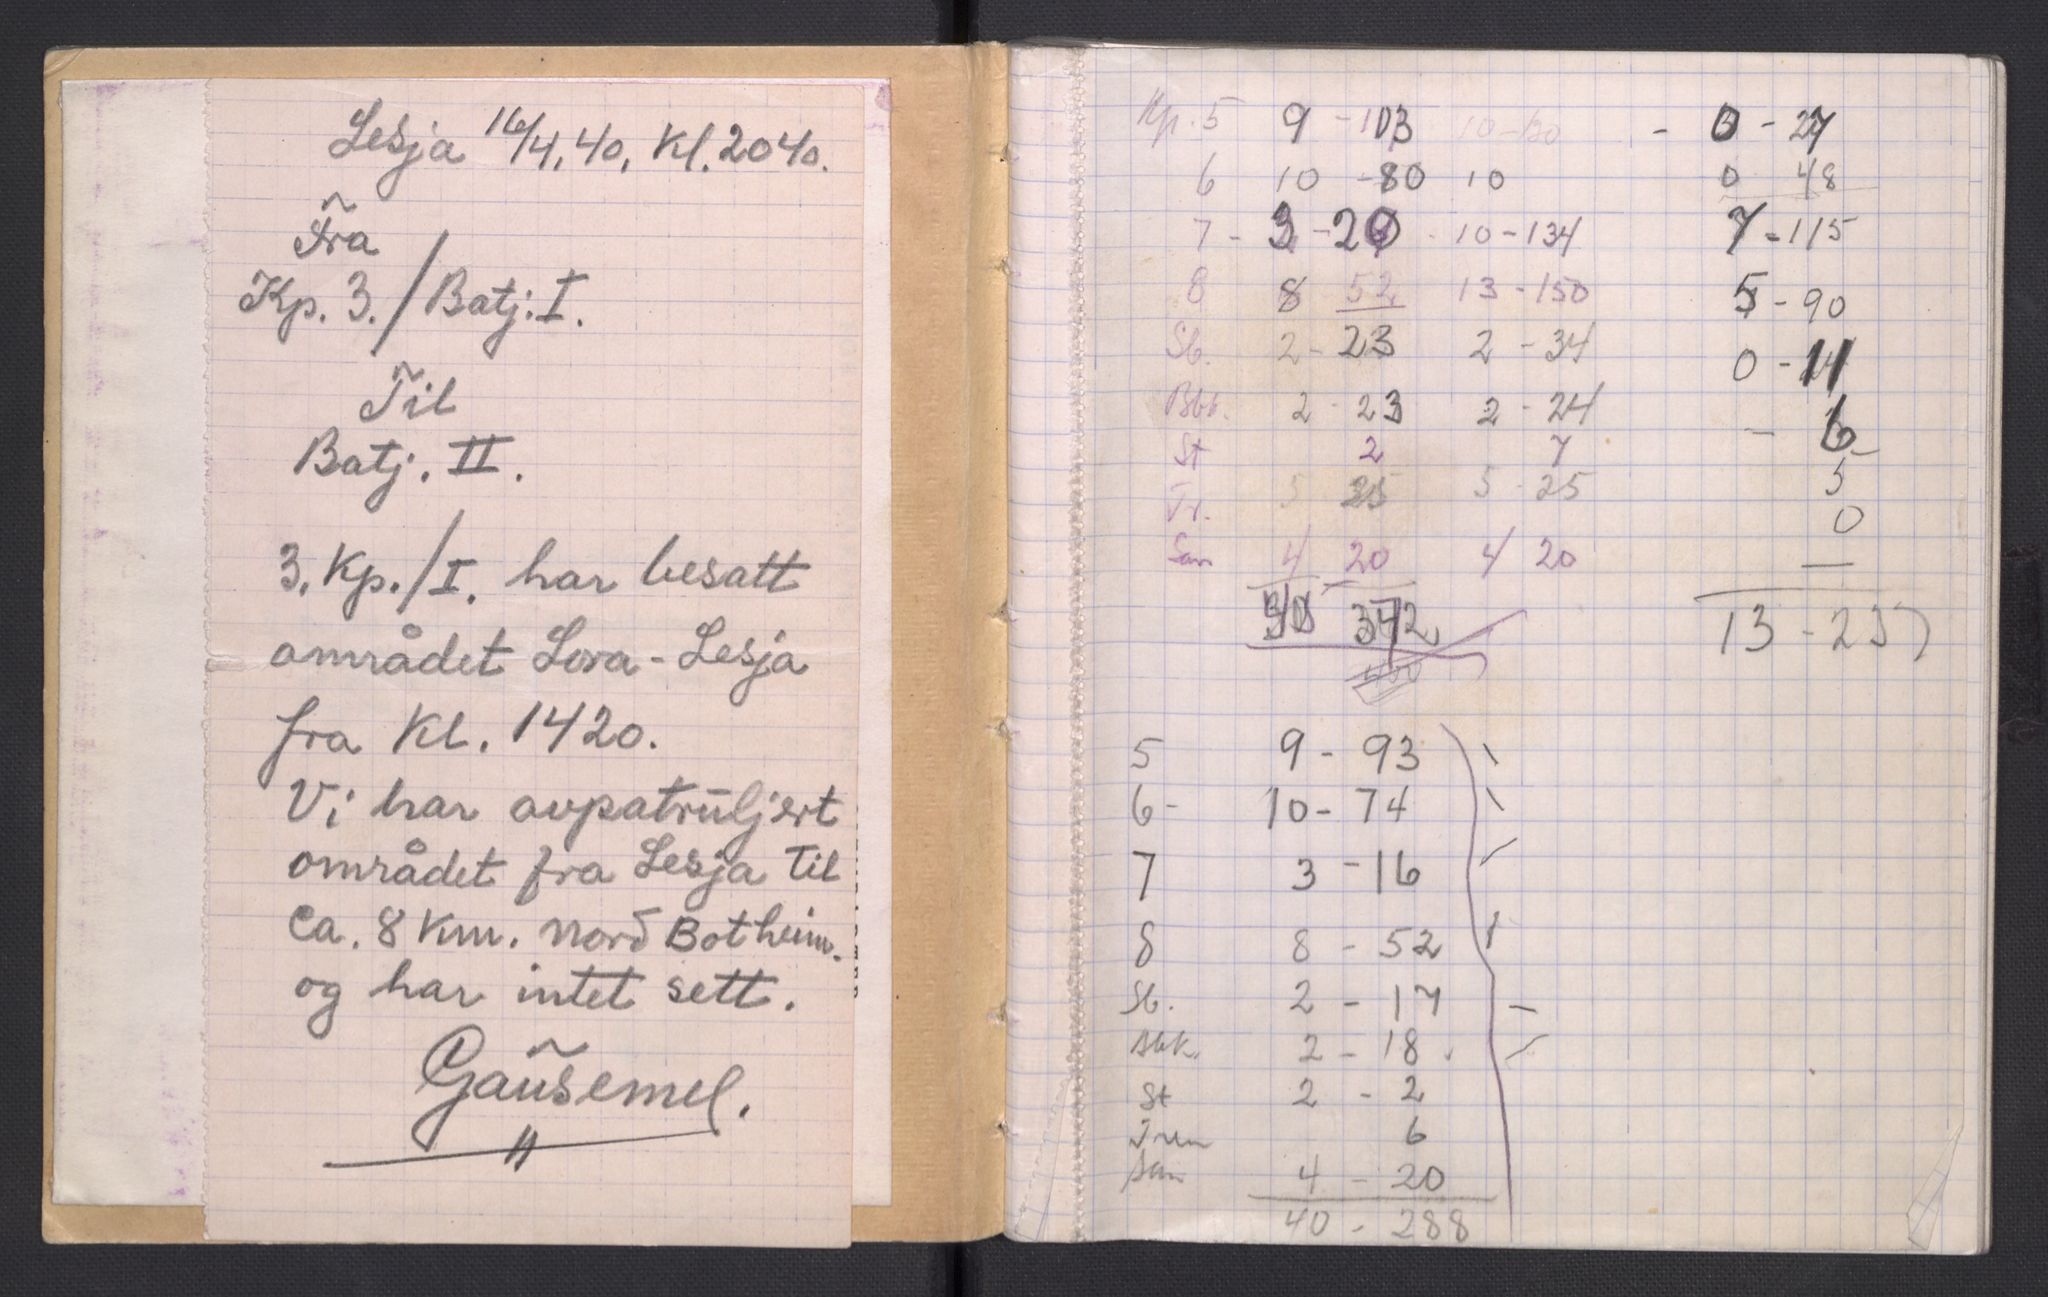 Lesja 16/4.40. Kl. 2040.
Fra
Kp. 3./Batj. I.
Til
Batj. II.
3. Kp./I. har besatt
området Lora - Lesja
fra Kl. 1420.
Vi har avpatruljert
området fra Lesja til
ca. 8 Km. nord Botheim.
og har intet sett.
Gausemel.
Kp. 5 9 - 103 10 - 130 - 0 - 27
6 10 - 80 10 0 48
7 - 3 - 20 - 10 - 134 7 - 115
8 8 52 13 - 150 5 - 90
Sb. 2 - 23 2 - 34 0 - 11
Bbk. 2 - 23 2 - 24 - 6
St 2 7 5
Tr. 5 25 5 - 25 0
San 4 20 4 20 —
342 13 - 237
5 9 - 93
6 - 10 - 74
7 3 - 16
8 8 - 52
Sb. 2 - 17
Bbk. 2 - 18
St 2 - 2
Tren 6
San 4 - 20
40 - 288